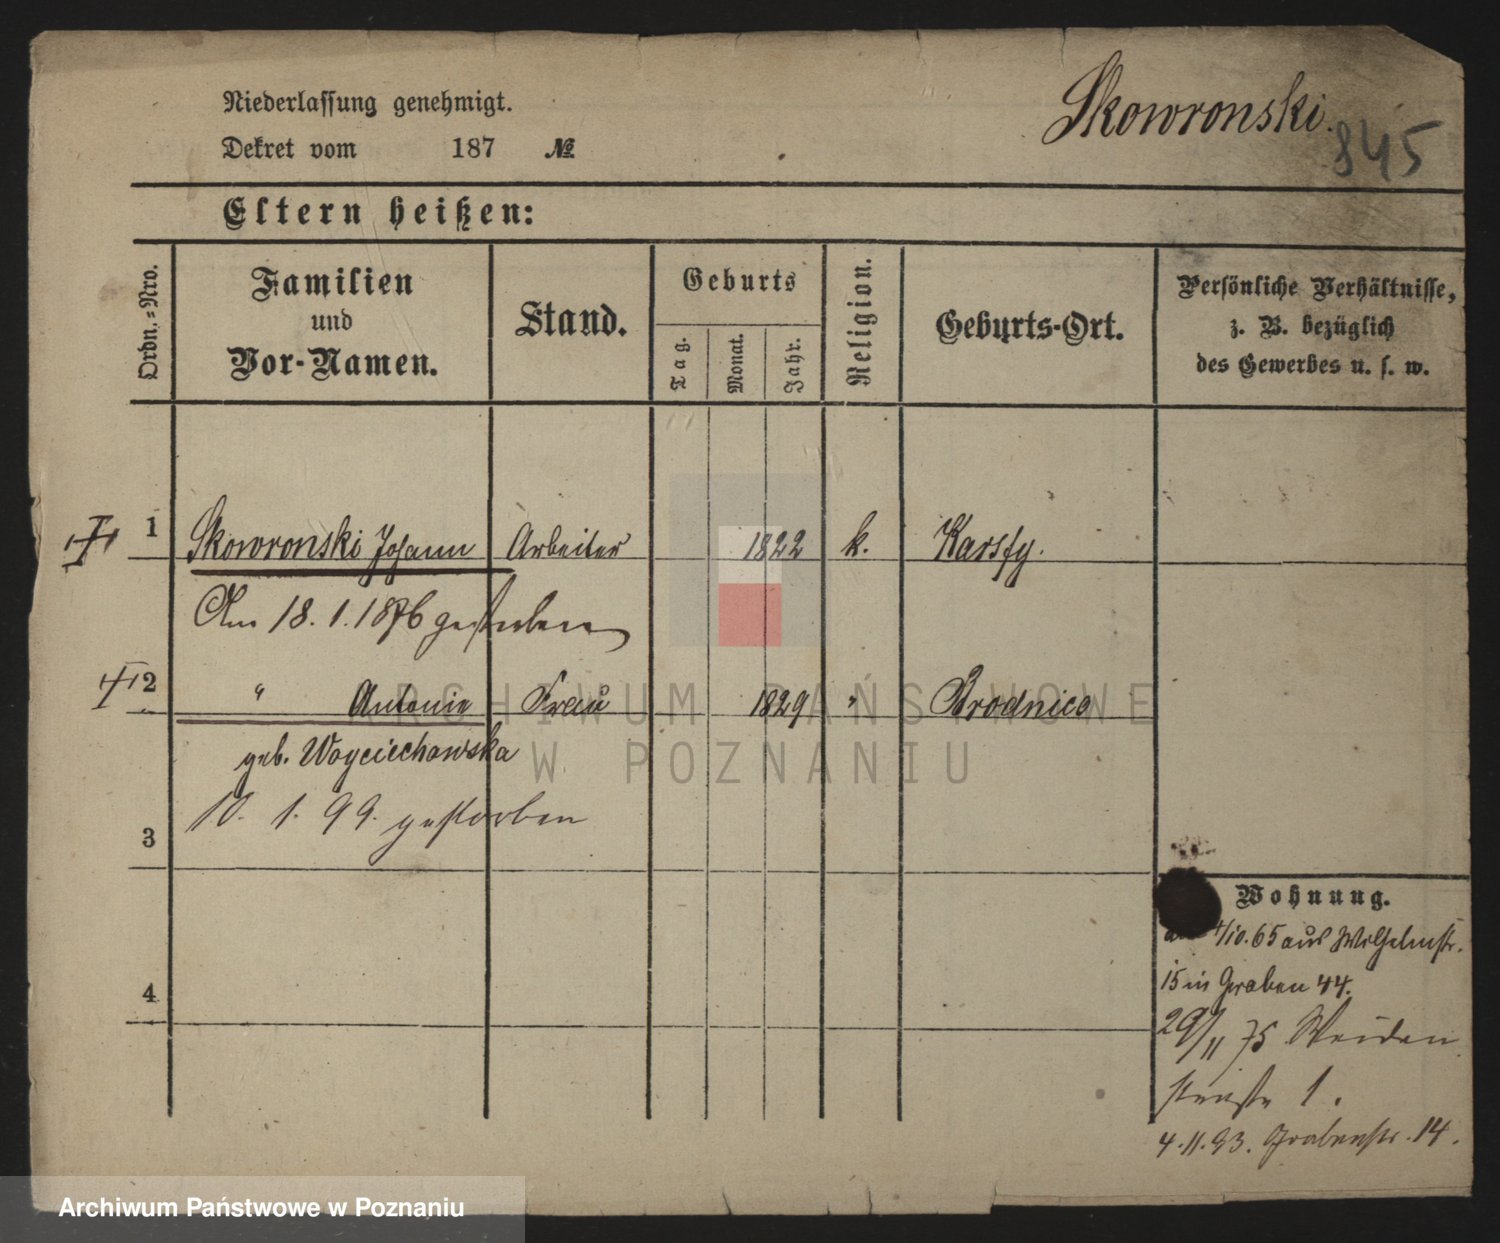 Niederlassung genehmigt.
Skowronski.
845
Dekret vom 187 №
Eltern heißen:
Ordn.-Nro.
Familien
und
Vor-Namen.
Stand.
Geburts
Tag.
Monat.
Jahr.
Religion.
Geburts-Ort.
Persönliche Verhältnisse,
z. B. bezüglich
des Gewerbes u. s. w.
1 Skowronski Johann Arbeiter 1822 k. Karsfy.
Am 18.1.1876 gestorben
2 " Antonie Frau 1829 " Brodnica
geb. Woyciechowska
10. 1. 99. gestorben
3
4
Wohnung.
4/10.65 aus Wilhelmstr.
15 in Graben 44.
29/11 75 Weiden
straße 1.
4.11.93. Grabenstr. 14.
ARCHIWUM PAŃSTWOWE
W POZNANIU
Archiwum Państwowe w Poznaniu